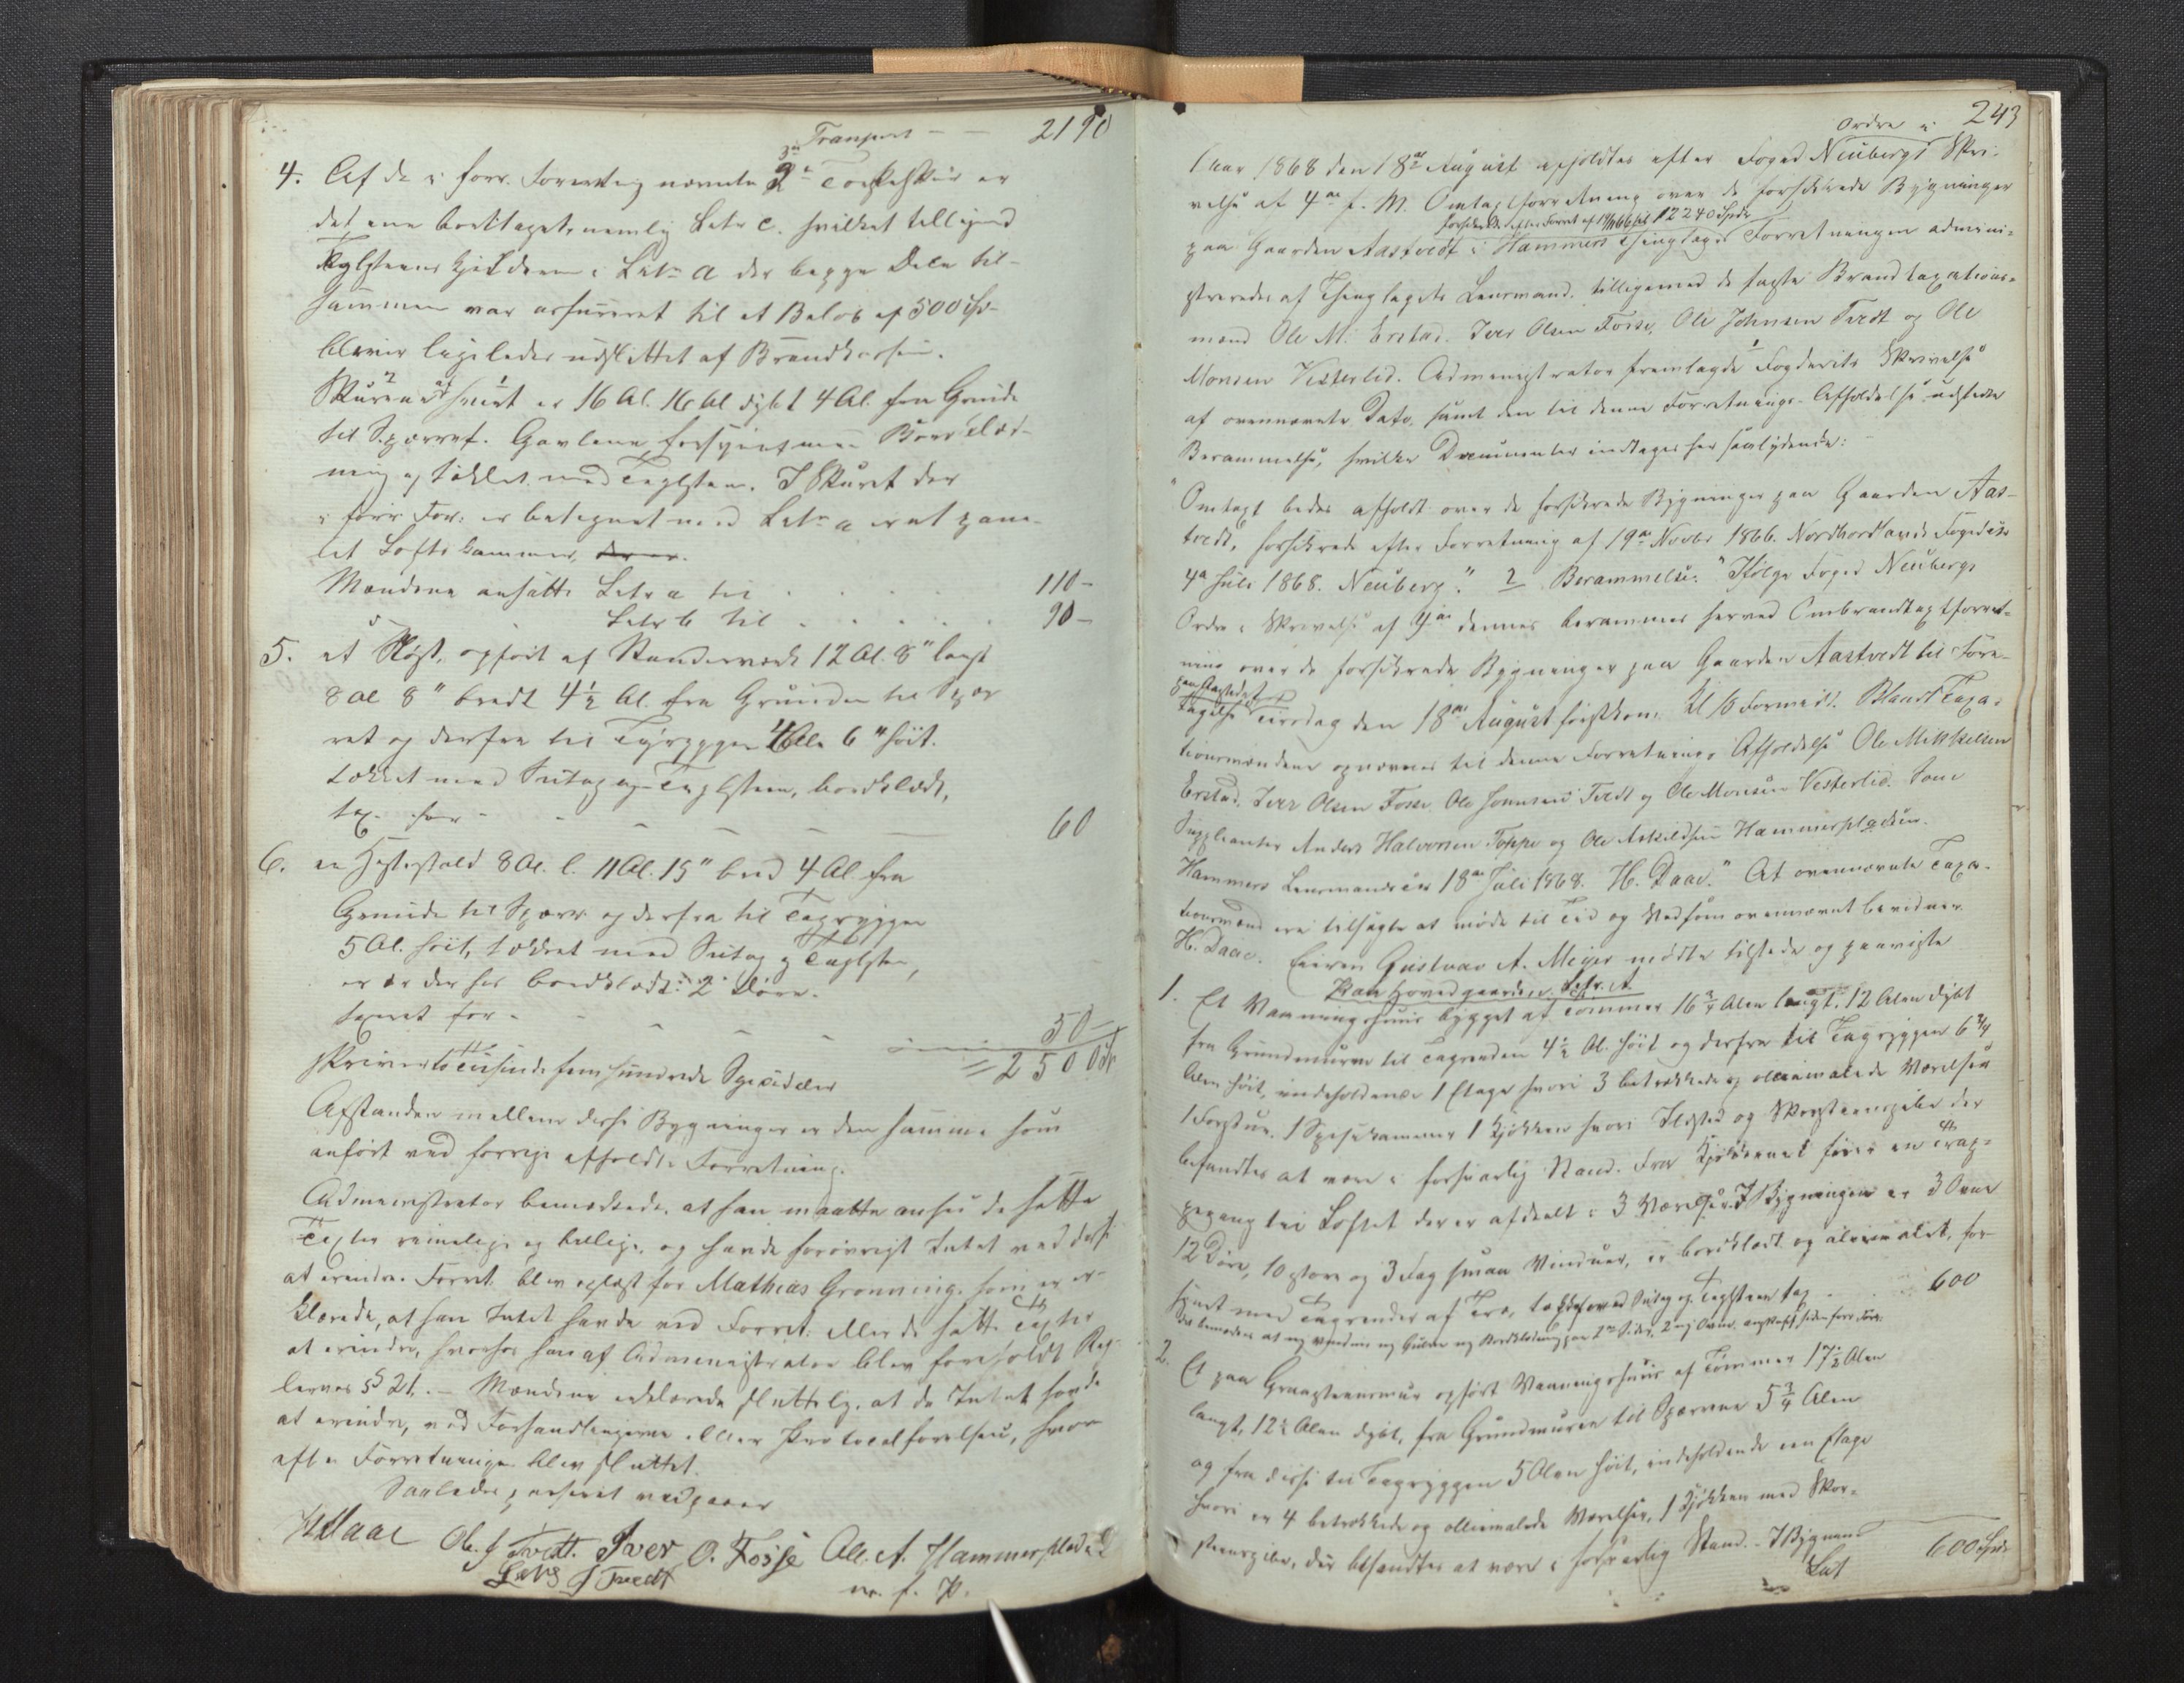 Transport - - 2190
4. Af de i forr. Forretning nævnte 3de Torskeskur er
det ene borttaget, nemlig Litr c. hvilket tilligemed
Teglsteens Kjeldere i Litr a der begge Dele til-
sammen var assureret til et Beløb af 500 Spd
blever ligeledes udslettet af Brandkassen.
Skurene hvert er 16 Al. 16 Al dybt 4 Al. fra Grunde
til Sperret. Gavlene forsynet med Bordklæd-
ning og tækket med Teglsteen. I Skuret der
i forr For: er betegnet med Litr a er et pane-
let Loftskammer,
Mændene ansatte Litr a til . . . . 110 -
Litr b til . . . . . 90 -
5. et Nøst, opført af Standerværk 12 Al. 8" langt
8 Al 8" bredt 4½ Al. fra Grunden til Sper
ret og derfra til Tagryggen 4 Aln 6" høit.
tækket med Sutag og Teglsteen, bordklædt,
tax. for - - - - - 60
6. en Hestestald 8 Al. l. 11 Al. 15" bred 4 Al. fra
Grunde til Sperr. og derfra til Tagryggen
5 Al. høit, tækket med Sutag og Teglsten,
bordklædt: 2 Døre.
taxeret for - - - - 50 -
skriver to Tusinde fem hundrede Speciedaler = 2500 Spd
Afstanden mellem disse Bygninger er den samme som
anført ved forrige afholdte Forretning.
Administrator bemærkede, at han maatte ansee de satte
Taxter rimelige og billige, og havde forøvrigt Intet ved disse
at erindre. Forret. blev oplæst for Mathias Grønning, som er-
klærede, at han Intet havde ved Forret. eller de satte Taxter
at erindre, hvorfor han af Administrator blev foreholdt Reg-
lernes § 21. - Mændene erklærede sluttelig, at de Intet havde
at erindre, ved Forhandlingerne eller Protocolførelsen, hvor
efter Forretningen blev sluttet.
Saaledes passeret vedgaaer
H Daae Ole. J Tvedt. Iver O. Fosse Ole. A. Hammerpladsen
Lars J Tvedt m. f. P.
Ordre i 243
Aar 1868 den 18de August afholdtes efter Foged Neubergs Skri-
velse af 4de f. M. Omtaxtforretning over de forsikrede Bygninger
forsikrede efter Forret af 19/11 66 til 12240 Spdr
paa Gaarden Aastvedt i Hammers Thinglag. Forretningen admini-
streredes af Thinglagets Lensmand, tilligemed de faste Brandtaxations-
mænd Ole M. Erstad, Iver Olsen Fosse, Ole Johnsen Tvedt og Ole
Monsen Vesterlid. Administrator fremlagde 1 Fogderiets Skrivelse
af ovennævnte Dato, samt den til denne Forretnings Afholdelse udstedte
Berammelse, hvilke Documenter indtages her saalydende:
"Omtaxt bedes afholdt over de forsikrede Bygninger paa Gaarden Aas-
tvedt, forsikrede efter Forretning af 19de Novbr 1866. Nordhordlands Fogderi
4de Juli 1868. Neuberg." 2 Berammelse: "Ifølge Foged Neubergs
Ordre i Skrivelse af 4de dennes berammes herved Ombrandtaxtforret-
ning over de forsikrede Bygninger paa Gaarden Aastvedt til Fore-
paa Aastedet
tagelse Tirsdag den 18de August førstkom. Kl 10 Formidd. Blandt Taxa-
tionsmændene opnævnes til denne Forretnings Afholdelse Ole Mikkelsen
Erstad, Iver Olsen Fosse, Ole Johnsen Tvedt og Ole Monsen Vesterlid. Som
Supplianter Anders Halvorsen Toppe og Ole Askildsen Hammerpladsen.
Hammers Lensmandsen 18de Juli 1868. H. Daae." At ovennævnte Taxa-
tionsmænd ere tilsagte at møde til Tid og Sted som ovennævnt bevidner
H. Daae. Eieren Gustav A. Meyer mødte tilstede og paaviste
Paa Hovedgaarden Litr. A
1. Et Vaaningshuus bygget af Tømmer 16¾ Alen langt, 12 Alen dybt
fra Grundmuren til Tagrenden 4½ Al. høit og derfra til Tagryggen 6¾
Alen høit, indeholdende 1 Etage hvori 3 betrækkede og oliemalede Værelser
1 Forstue, 1 Spisekammer 1 Kjøkken hvori Ildsted og Skorsteenspibe der
befandtes at være i forsvarlig Stand. Fra Kjøkkenet fører en Trap-
pegang til Loftet der er afdeelt i 3 Værelser. I Bygningen er 3 Ovne
12 Døre, 10 store og 3 Fag smaa Vinduer, er bordklædt og oliemalet, for-
synet med Tagrender af Træ, tækket med Sutag og Teglsteenstag . . 600
2. Et paa Graasteensmur opført Vaaningshuus af Tømmer 17½ Alen
langt, 12½ Alen dybt, fra Grundmuren til Sperrene 5¾ Alen
og fra disse til Tagryggen 5 Alen høit, indeholdende een Etage
hvori er 4 betrækkede og oliemalede Værelser, 1 Kjøkken med Skor-
steenspibe, der befandtes at være i forsvarlig Stand. - I Bygnin-
Lat 600 Spdr